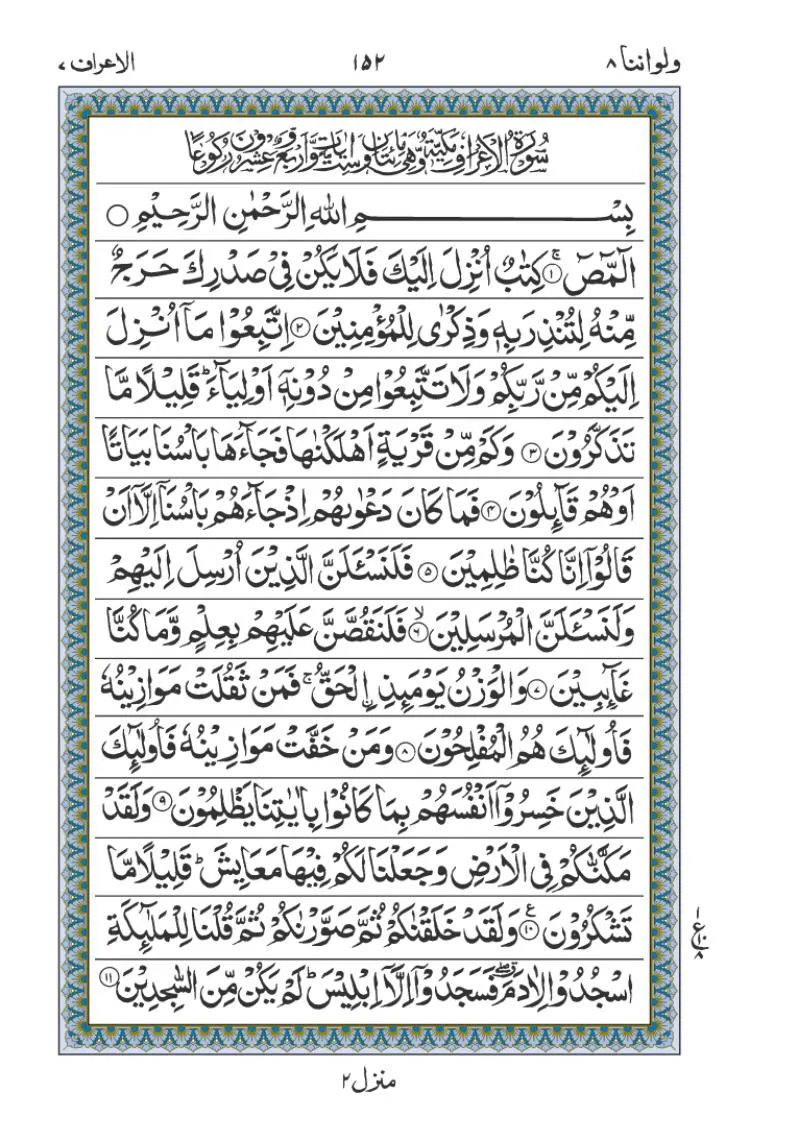 ولواننا ۸ ۱۵۲ الاعراف ۷
سُوْرَةُ الْاَعْرَافِ مَكِّيَّةٌ وَّهِيَ مِائَتَانِ وَسِتُّ اٰيَاتٍ وَّاَرْبَعٌ وَّعِشْرُوْنَ رُكُوْعًا
بِسْمِ اللّٰهِ الرَّحْمٰنِ الرَّحِيْمِ ○
الٓمّٓصٓ ۚ﴿۱﴾ كِتٰبٌ اُنْزِلَ اِلَيْكَ فَلَا يَكُنْ فِيْ صَدْرِكَ حَرَجٌ
مِّنْهُ لِتُنْذِرَ بِهٖ وَذِكْرٰى لِلْمُؤْمِنِيْنَ ﴿۲﴾ اِتَّبِعُوْا مَاۤ اُنْزِلَ
اِلَيْكُمْ مِّنْ رَّبِّكُمْ وَلَا تَتَّبِعُوْا مِنْ دُوْنِهٖۤ اَوْلِيَآءَ ؕ قَلِيْلًا مَّا
تَذَكَّرُوْنَ ﴿۳﴾ وَكَمْ مِّنْ قَرْيَةٍ اَهْلَكْنٰهَا فَجَآءَهَا بَاْسُنَا بَيَاتًا
اَوْ هُمْ قَآئِلُوْنَ ﴿۴﴾ فَمَا كَانَ دَعْوٰىهُمْ اِذْ جَآءَهُمْ بَاْسُنَاۤ اِلَّاۤ اَنْ
قَالُوْۤا اِنَّا كُنَّا ظٰلِمِيْنَ ﴿۵﴾ فَلَنَسْـَٔلَنَّ الَّذِيْنَ اُرْسِلَ اِلَيْهِمْ
وَلَنَسْـَٔلَنَّ الْمُرْسَلِيْنَ ۙ﴿۶﴾ فَلَنَقُصَّنَّ عَلَيْهِمْ بِعِلْمٍ وَّمَا كُنَّا
غَآئِبِيْنَ ﴿۷﴾ وَالْوَزْنُ يَوْمَئِذِ ِۣالْحَقُّ ۚ فَمَنْ ثَقُلَتْ مَوَازِيْنُهٗ
فَاُولٰٓئِكَ هُمُ الْمُفْلِحُوْنَ ﴿۸﴾ وَمَنْ خَفَّتْ مَوَازِيْنُهٗ فَاُولٰٓئِكَ
الَّذِيْنَ خَسِرُوْۤا اَنْفُسَهُمْ بِمَا كَانُوْا بِاٰيٰتِنَا يَظْلِمُوْنَ ﴿۹﴾ وَلَقَدْ
مَكَّنّٰكُمْ فِي الْاَرْضِ وَجَعَلْنَا لَكُمْ فِيْهَا مَعَايِشَ ؕ قَلِيْلًا مَّا
تَشْكُرُوْنَ ﴿۱۰﴾ ع وَلَقَدْ خَلَقْنٰكُمْ ثُمَّ صَوَّرْنٰكُمْ ثُمَّ قُلْنَا لِلْمَلٰٓئِكَةِ
۱ ع ۱۰ ۸
اسْجُدُوْا لِاٰدَمَ ۖ فَسَجَدُوْۤا اِلَّاۤ اِبْلِيْسَ ؕ لَمْ يَكُنْ مِّنَ السّٰجِدِيْنَ ﴿۱۱﴾
منزل ۲